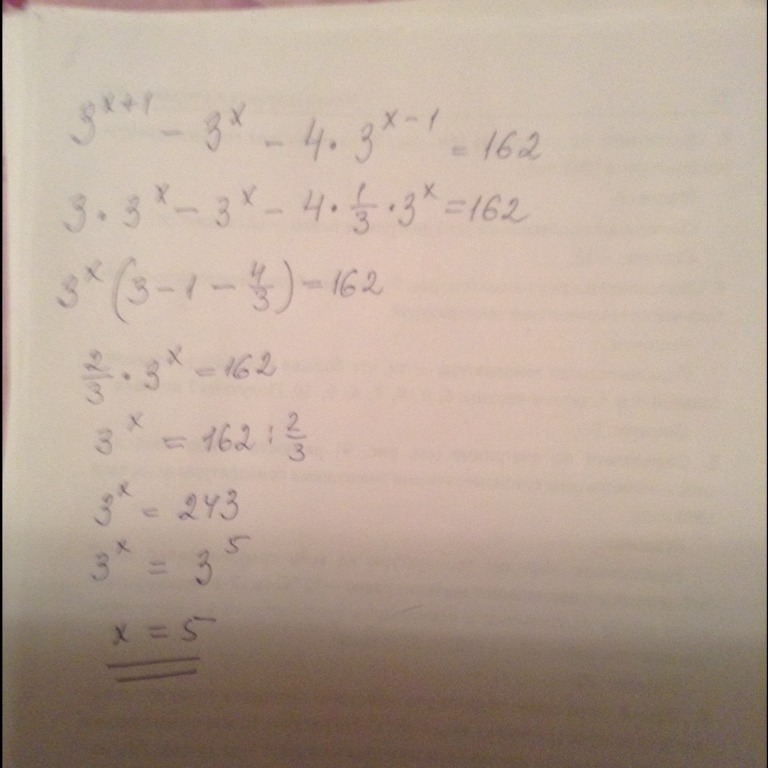 3^{x+1} - 3^x - 4 · 3^{x-1} = 162
3 · 3^x - 3^x - 4 · \frac{1}{3} · 3^x = 162
3^x (3 - 1 - \frac{4}{3}) = 162
\frac{2}{3} · 3^x = 162
3^x = 162 : \frac{2}{3}
3^x = 243
3^x = 3^5
x = 5